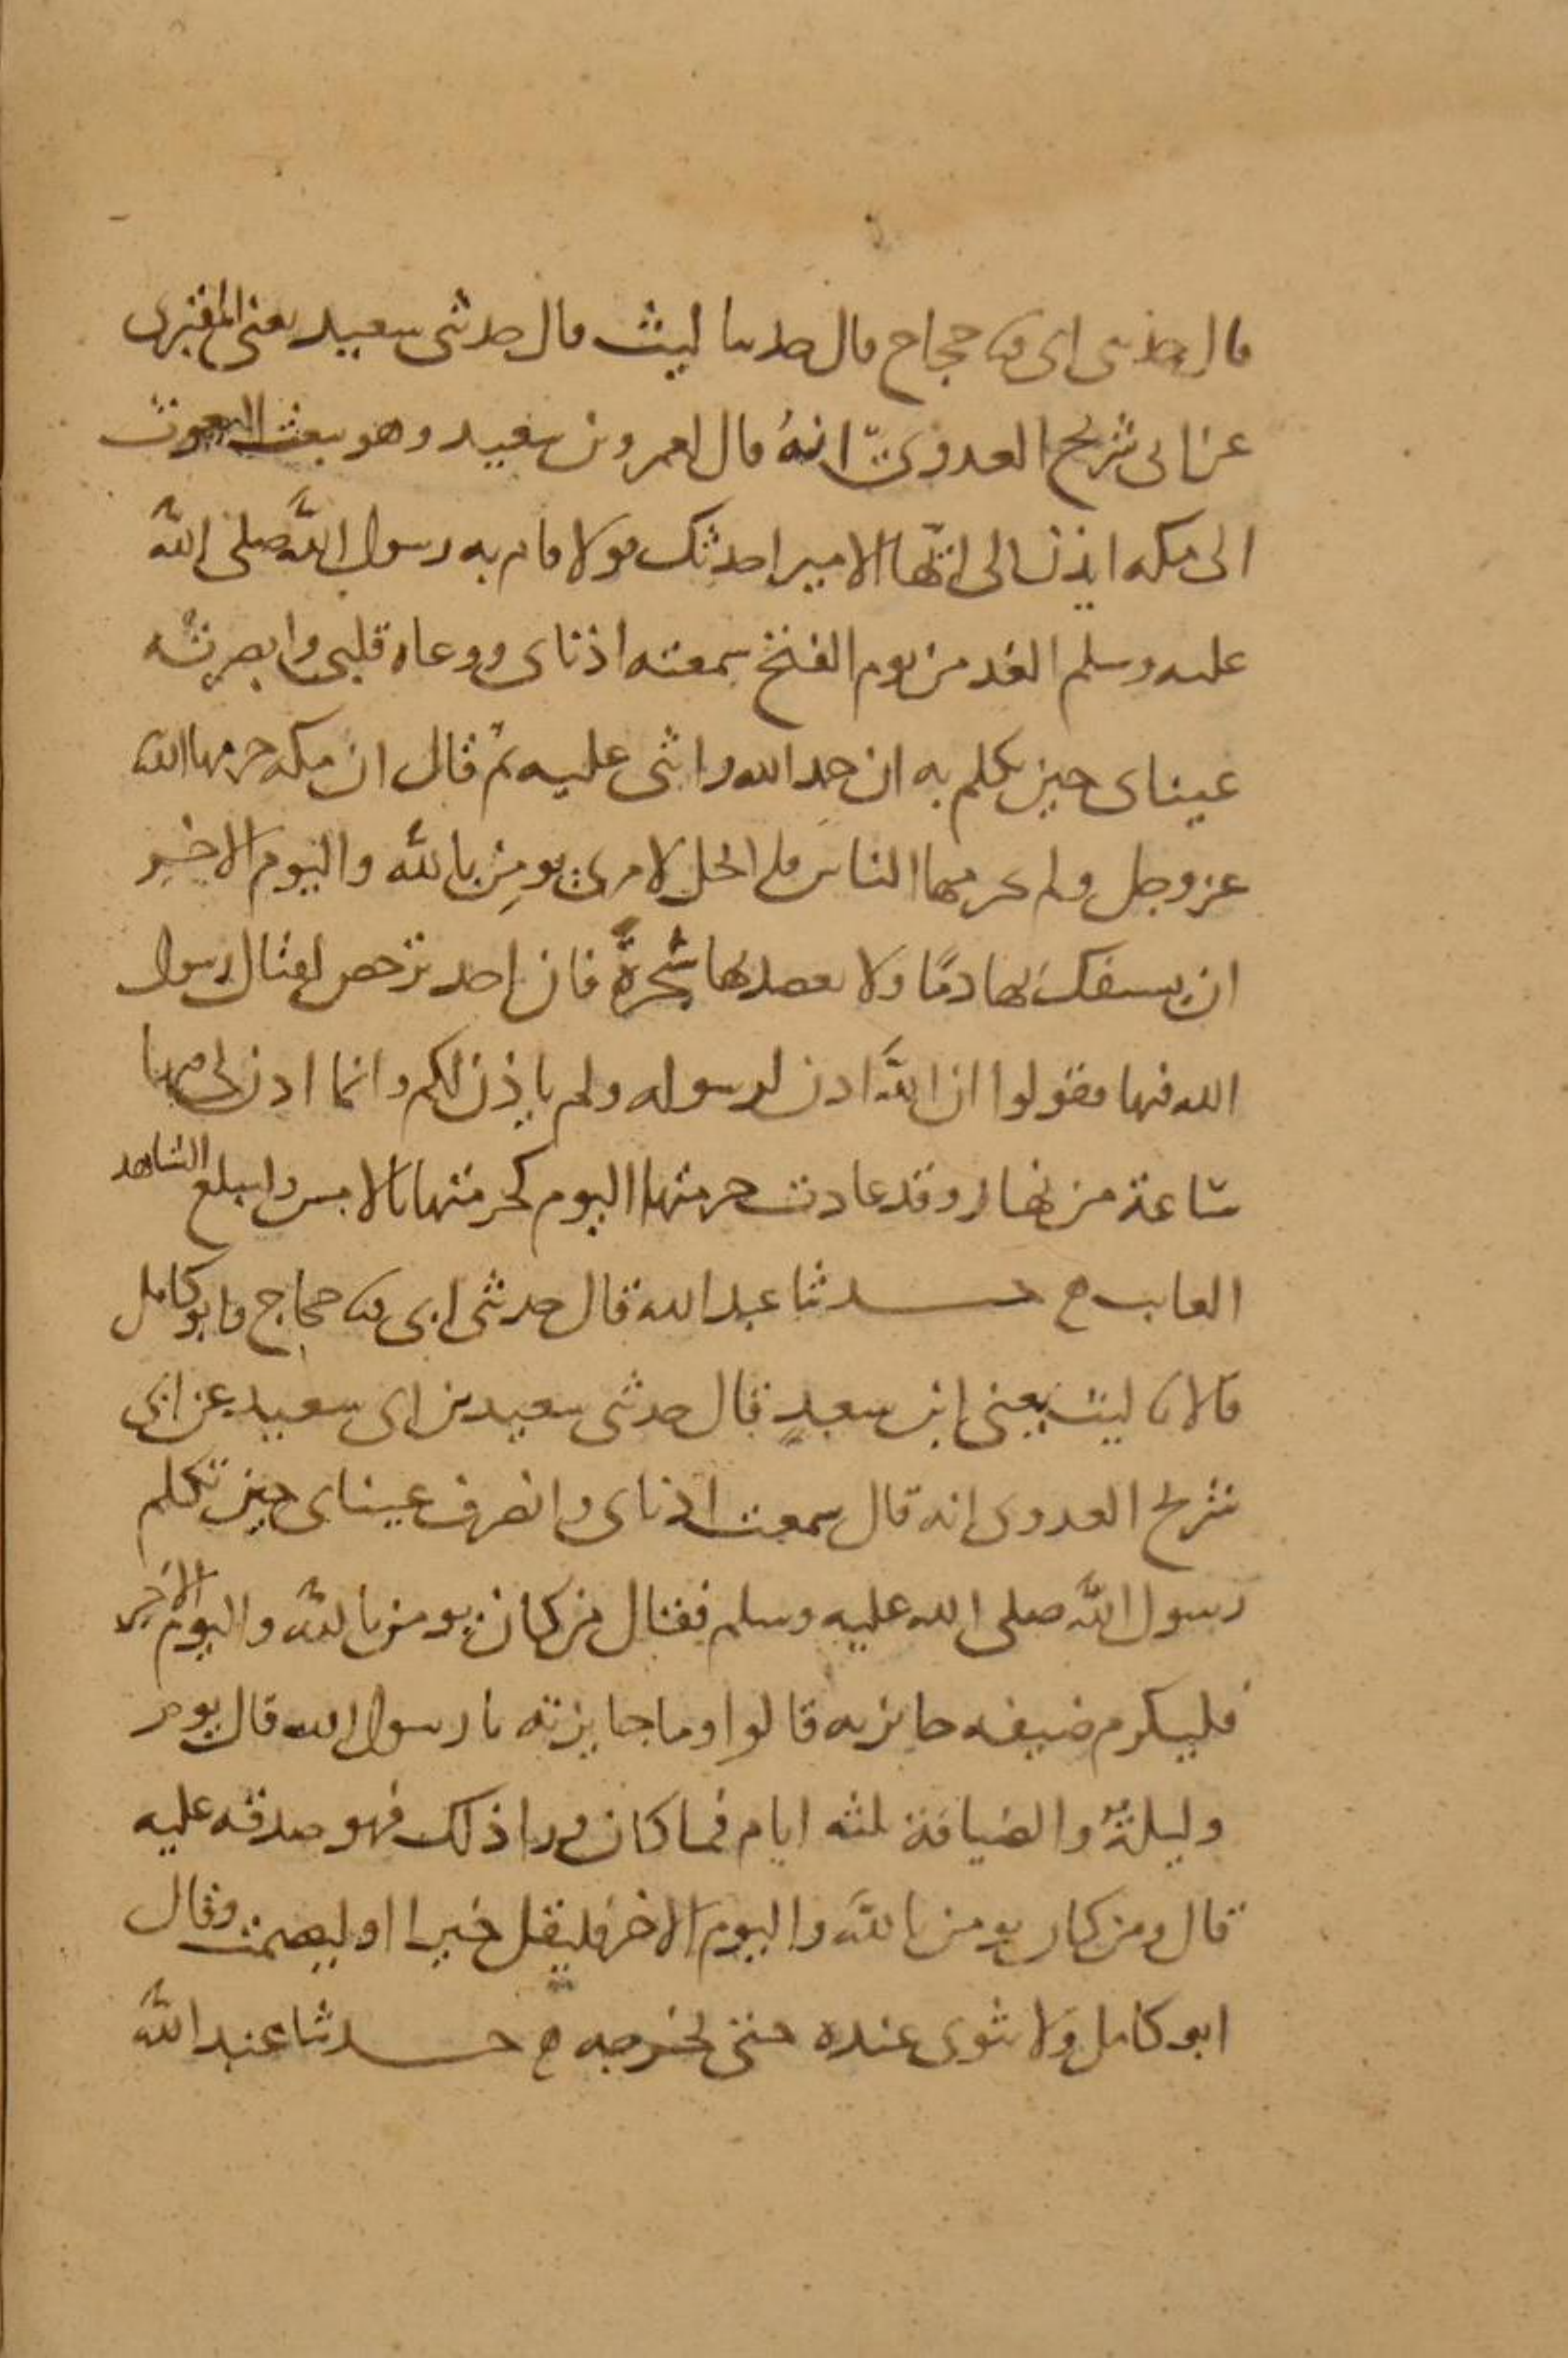 قال حدثني ابي ثنا حجاج قال حدثنا ليث قال حدثني سعيد يعني المقبري
عن ابي شريح العدويّ انهُ قال لعمرو بن سعيد وهو يبعث البعوث
الى مكه ايذن لي ايّها الامير احدثك قولا قام به رسول اللّه صلى اللّه
عليه وسلم الغد من يوم الفتح سمعته اذناى ووعاه قلبى وابصرته
عيناى حين تكلم به ان حمد الله واثنى عليه ثم قال ان مكه حرمها الله
عز وجل ولم يحرمها الناس فلا يحل لامرئ يومِن باللّه واليوم الاخير
ان يسفك بها دمًا ولا يعضد بها شجرةً فان احد ترخص لقتال رسول
الله فيها فقولوا ان اللّه اذن لرسوله ولم ياذن لكم وانما اذن لى فيها
ساعة من نهار وقد عادت حرمتها اليوم كحرمتها بالامس وليبلغ الشاهد
الغايب ه حدثنا عبد الله قال حدثنى ابى ثنا حجاج وابو كامل
قالا نا ليث يعنى ابن سعدٍ قال حدثنى سعيد بن ابى سعيد عن ابى
شريح العدوى انه قال سمعت اذناى وابصرت عيناى حين تكلم
رسول اللّه صلى الله عليه وسلم فقال من كان يومن باللّه واليوم الاخر
فليكرم ضيفه جايزته قالوا وما جايزته يا رسول الله قال يوم
وليلةٌ والضيافة ثلثه ايام فما كان ورا ذلك فهو صدقه عليه
قال ومن كان يومن باللّه واليوم الاخر فليقل خيرا او ليصمت وقال
ابو كامل ولا يثوى عنده حتى يحرجه ه حدثنا عبد اللّه